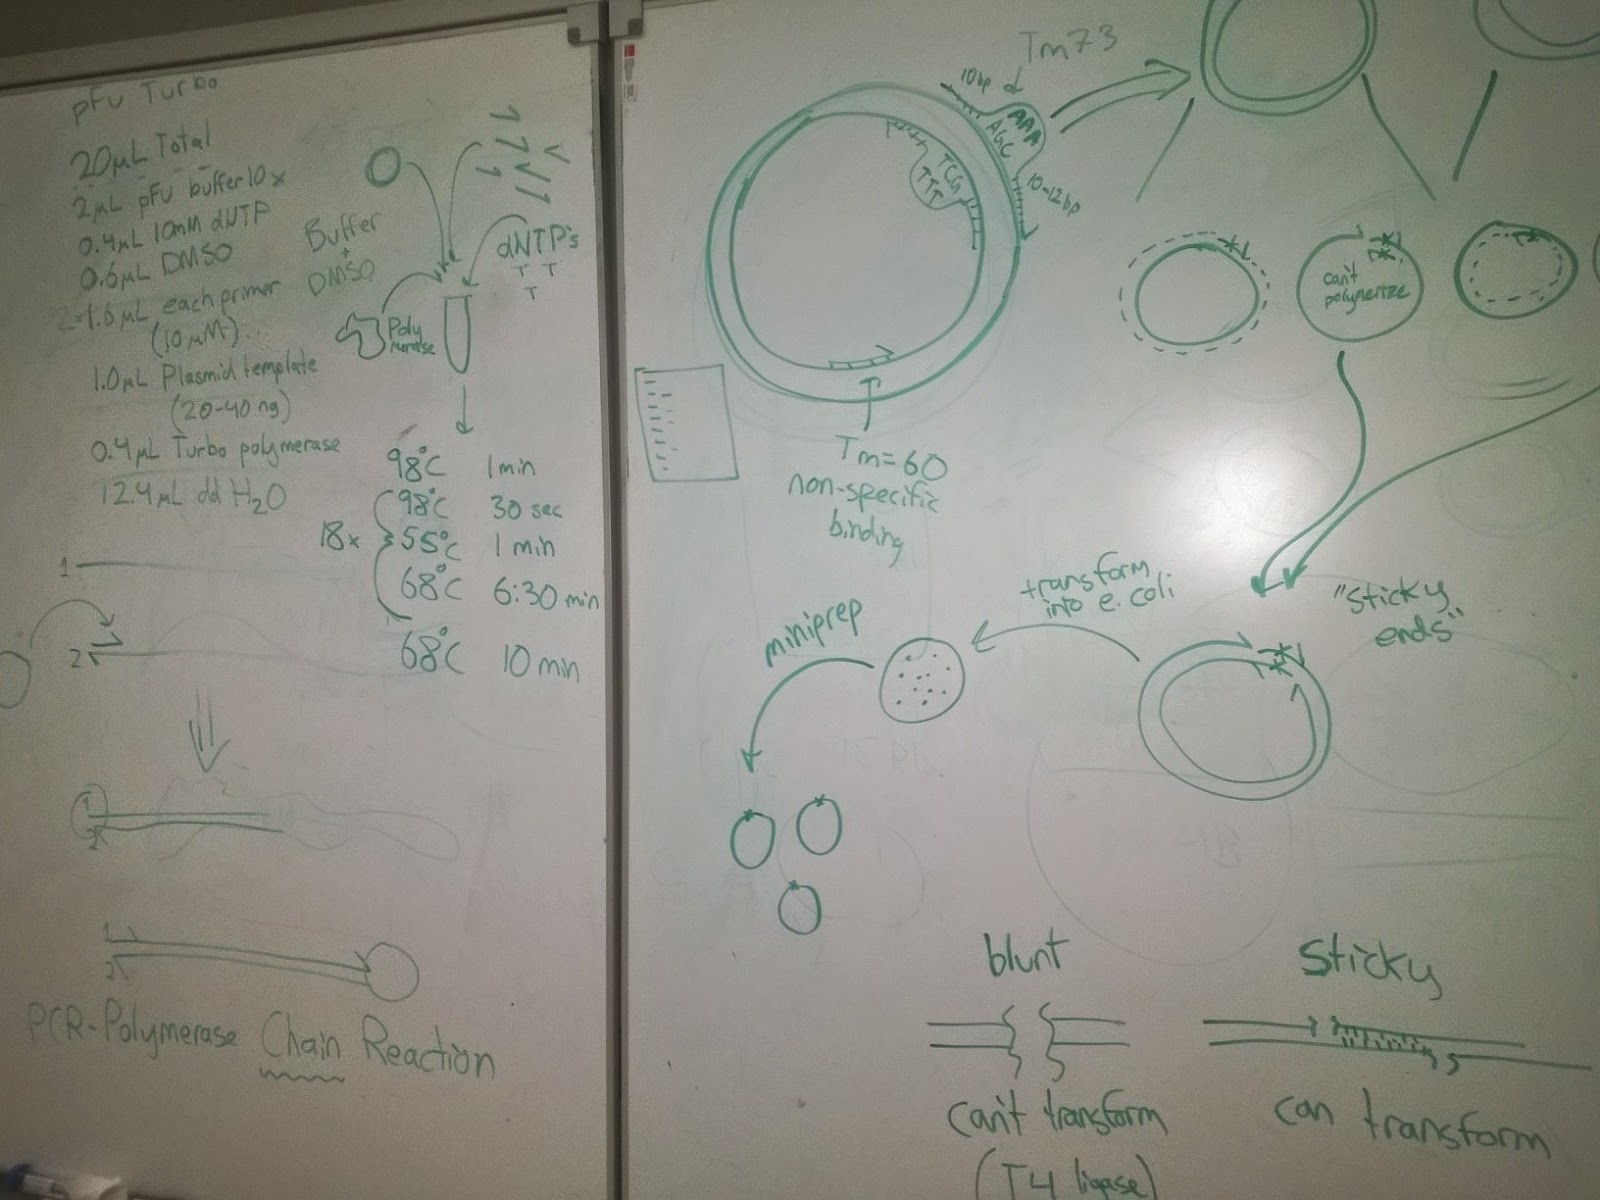 pfu Turbo
20µL Total
2µL pfu buffer 10x
0.4µL 10mM dNTP
0.6µL DMSO
2×1.6µL each primer
(10µM)
1.0µL Plasmid template
(20-40 ng)
0.4µL Turbo polymerase
12.4µL dd H₂O
Buffer
+
DMSO
dNTP's
T T
T
Poly
merase
98°C 1 min
98°C 30 sec
18x
55°C 1 min
68°C 6:30 min
68°C 10 min
1
2
1
2
1
2
PCR-Polymerase Chain Reaction
Tm73
10bp
AAA
AGC
10-12bp
TCG
TTT
Tm=60
non-specific
binding
can't
polymerize
"sticky
ends"
transform
into e. coli
miniprep
blunt
can't transform
(T4 ligase)
Sticky
can transform